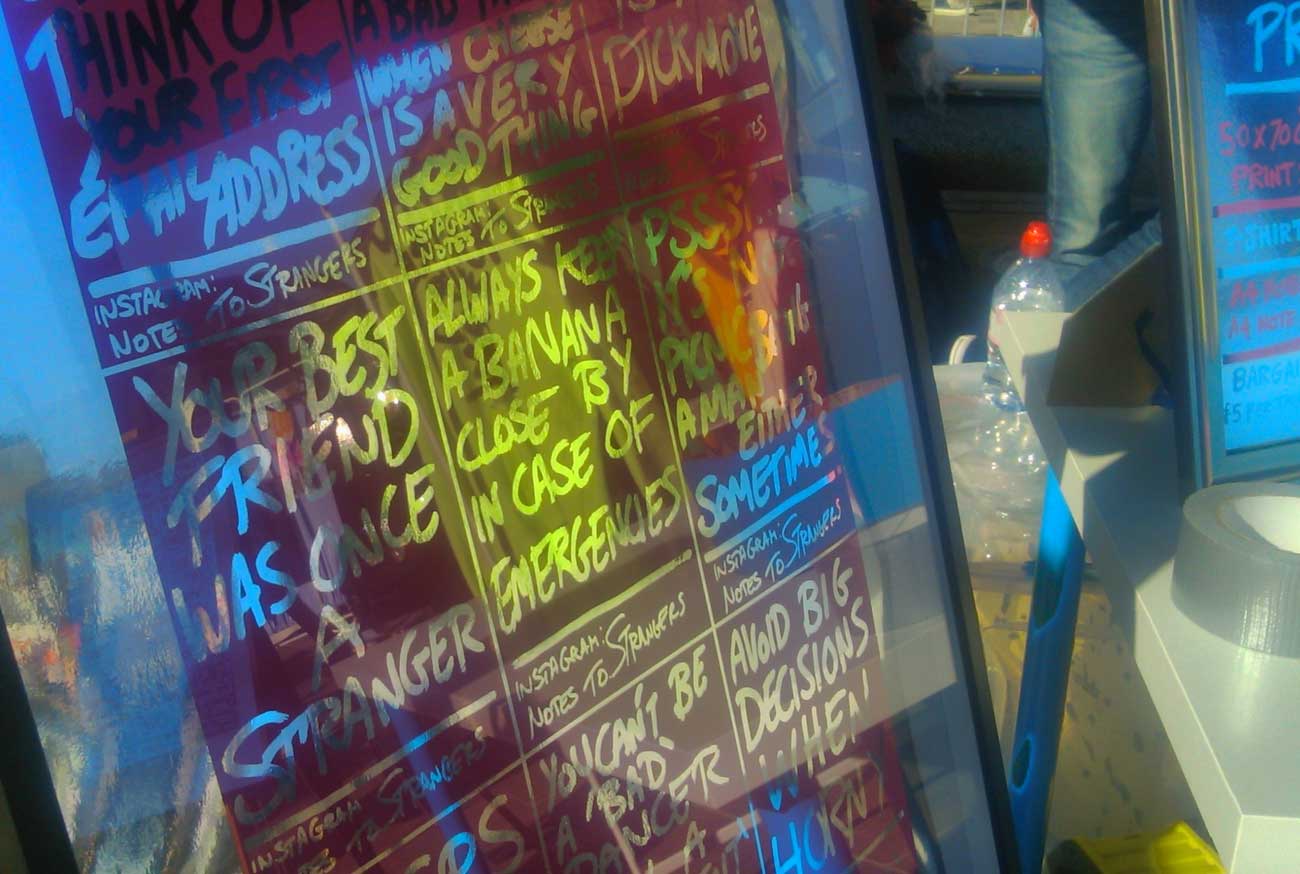 THINK OF
YOUR FIRST
EMAIL ADDRESS
INSTAGRAM:
NOTES TO STRANGERS
A BAD
WHEN CHEESE
IS A VERY
GOOD THING
INSTAGRAM:
NOTES TO STRANGERS
DICK MOVE
YOUR BEST
FRIEND
WAS ONCE
A
STRANGER
INSTAGRAM:
NOTES TO STRANGERS
ALWAYS KEEP
A BANANA
CLOSE BY
IN CASE OF
EMERGENCIES
INSTAGRAM:
NOTES TO STRANGERS
PSSST
A MAN
EITHER
SOMETIMES
INSTAGRAM:
NOTES TO STRANGERS
YOU CAN'T BE
A BAD
DANCER
A
AVOID BIG
DECISIONS
WHEN
HORNY
PR
50X70
PRINT
T-SHIRT
A4
A4 NOTE
BARGAI
£5